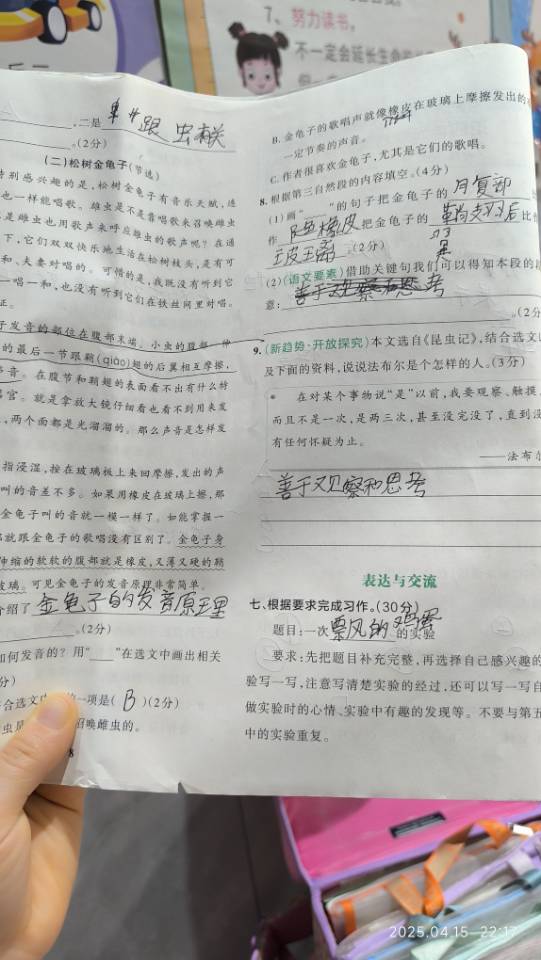 7、努力读书，
不一定会延长生命的
，二是 虫有关
。(2分)
(二)松树金龟子(节选)
特别感兴趣的是，松树金龟子有音乐天赋，连
也一样能唱歌。雄虫是不是靠唱歌来召唤雌虫
是雌虫也用歌声来呼应雄虫的歌声呢？在通
下，它们双双快乐地生活在松树枝头，是有可
和、夫妻对唱的。可惜的是，我既没有听到它
一唱一和，也没有听到它们在铁丝网里对唱。
证。
子发音的部位在腹部末端。小虫的腹部一伸
的最后一节跟鞘(qiào)翅的后翼相互摩擦，
音。在腹节和鞘翅的表面看不出有什么特
唱官。就是拿放大镜仔细看也看不到用来发
，两个面都是光溜溜的。那么声音是怎样发
指浸湿，按在玻璃板上来回摩擦，发出的声
叫的音差不多。如果用橡皮在玻璃上擦，那
金龟子叫的音就一模一样了。如能掌握一
那就跟金龟子的歌唱没有区别了。金龟子身
伸缩的软软的腹部就是橡皮，又薄又硬的鞘
玻璃。可见金龟子的发音原理非常简单。
介绍了 金龟子的发音原理
。(2分)
如何发音的？用“____”在选文中画出相关
分)
合选文内 的一项是( B )(2分)
虫是 召唤雌虫的。
8
B. 金龟子的歌唱声就像橡皮在玻璃上摩擦发出的
一定节奏的声音。
C. 作者很喜欢金龟子，尤其是它们的歌唱。
8. 根据第三自然段的内容填空。(4分)
(1)画“____”的句子把金龟子的 腹部
作 橡皮 ，把金龟子的 鞘翅 比作
玻璃 。(2分)
(2)(语文要素)借助关键句我们可以得知本段的
意： 善于观察和思考
。(2分)
9. (新趋势·开放探究)本文选自《昆虫记》，结合选文
及下面的资料，说说法布尔是个怎样的人。(3分)
在对某个事物说“是”以前，我要观察、触摸、
而且不是一次，是两三次，甚至没完没了，直到没
有任何怀疑为止。
——法布尔
善于观察和思考
表达与交流
七、根据要求完成习作。(30分)
题目：一次 的鸡蛋 的实验
要求：先把题目补充完整，再选择自己感兴趣的
验写一写，注意写清楚实验的经过，还可以写一写自
做实验时的心情、实验中有趣的发现等。不要与第五
中的实验重复。
2025.04.15 22:17